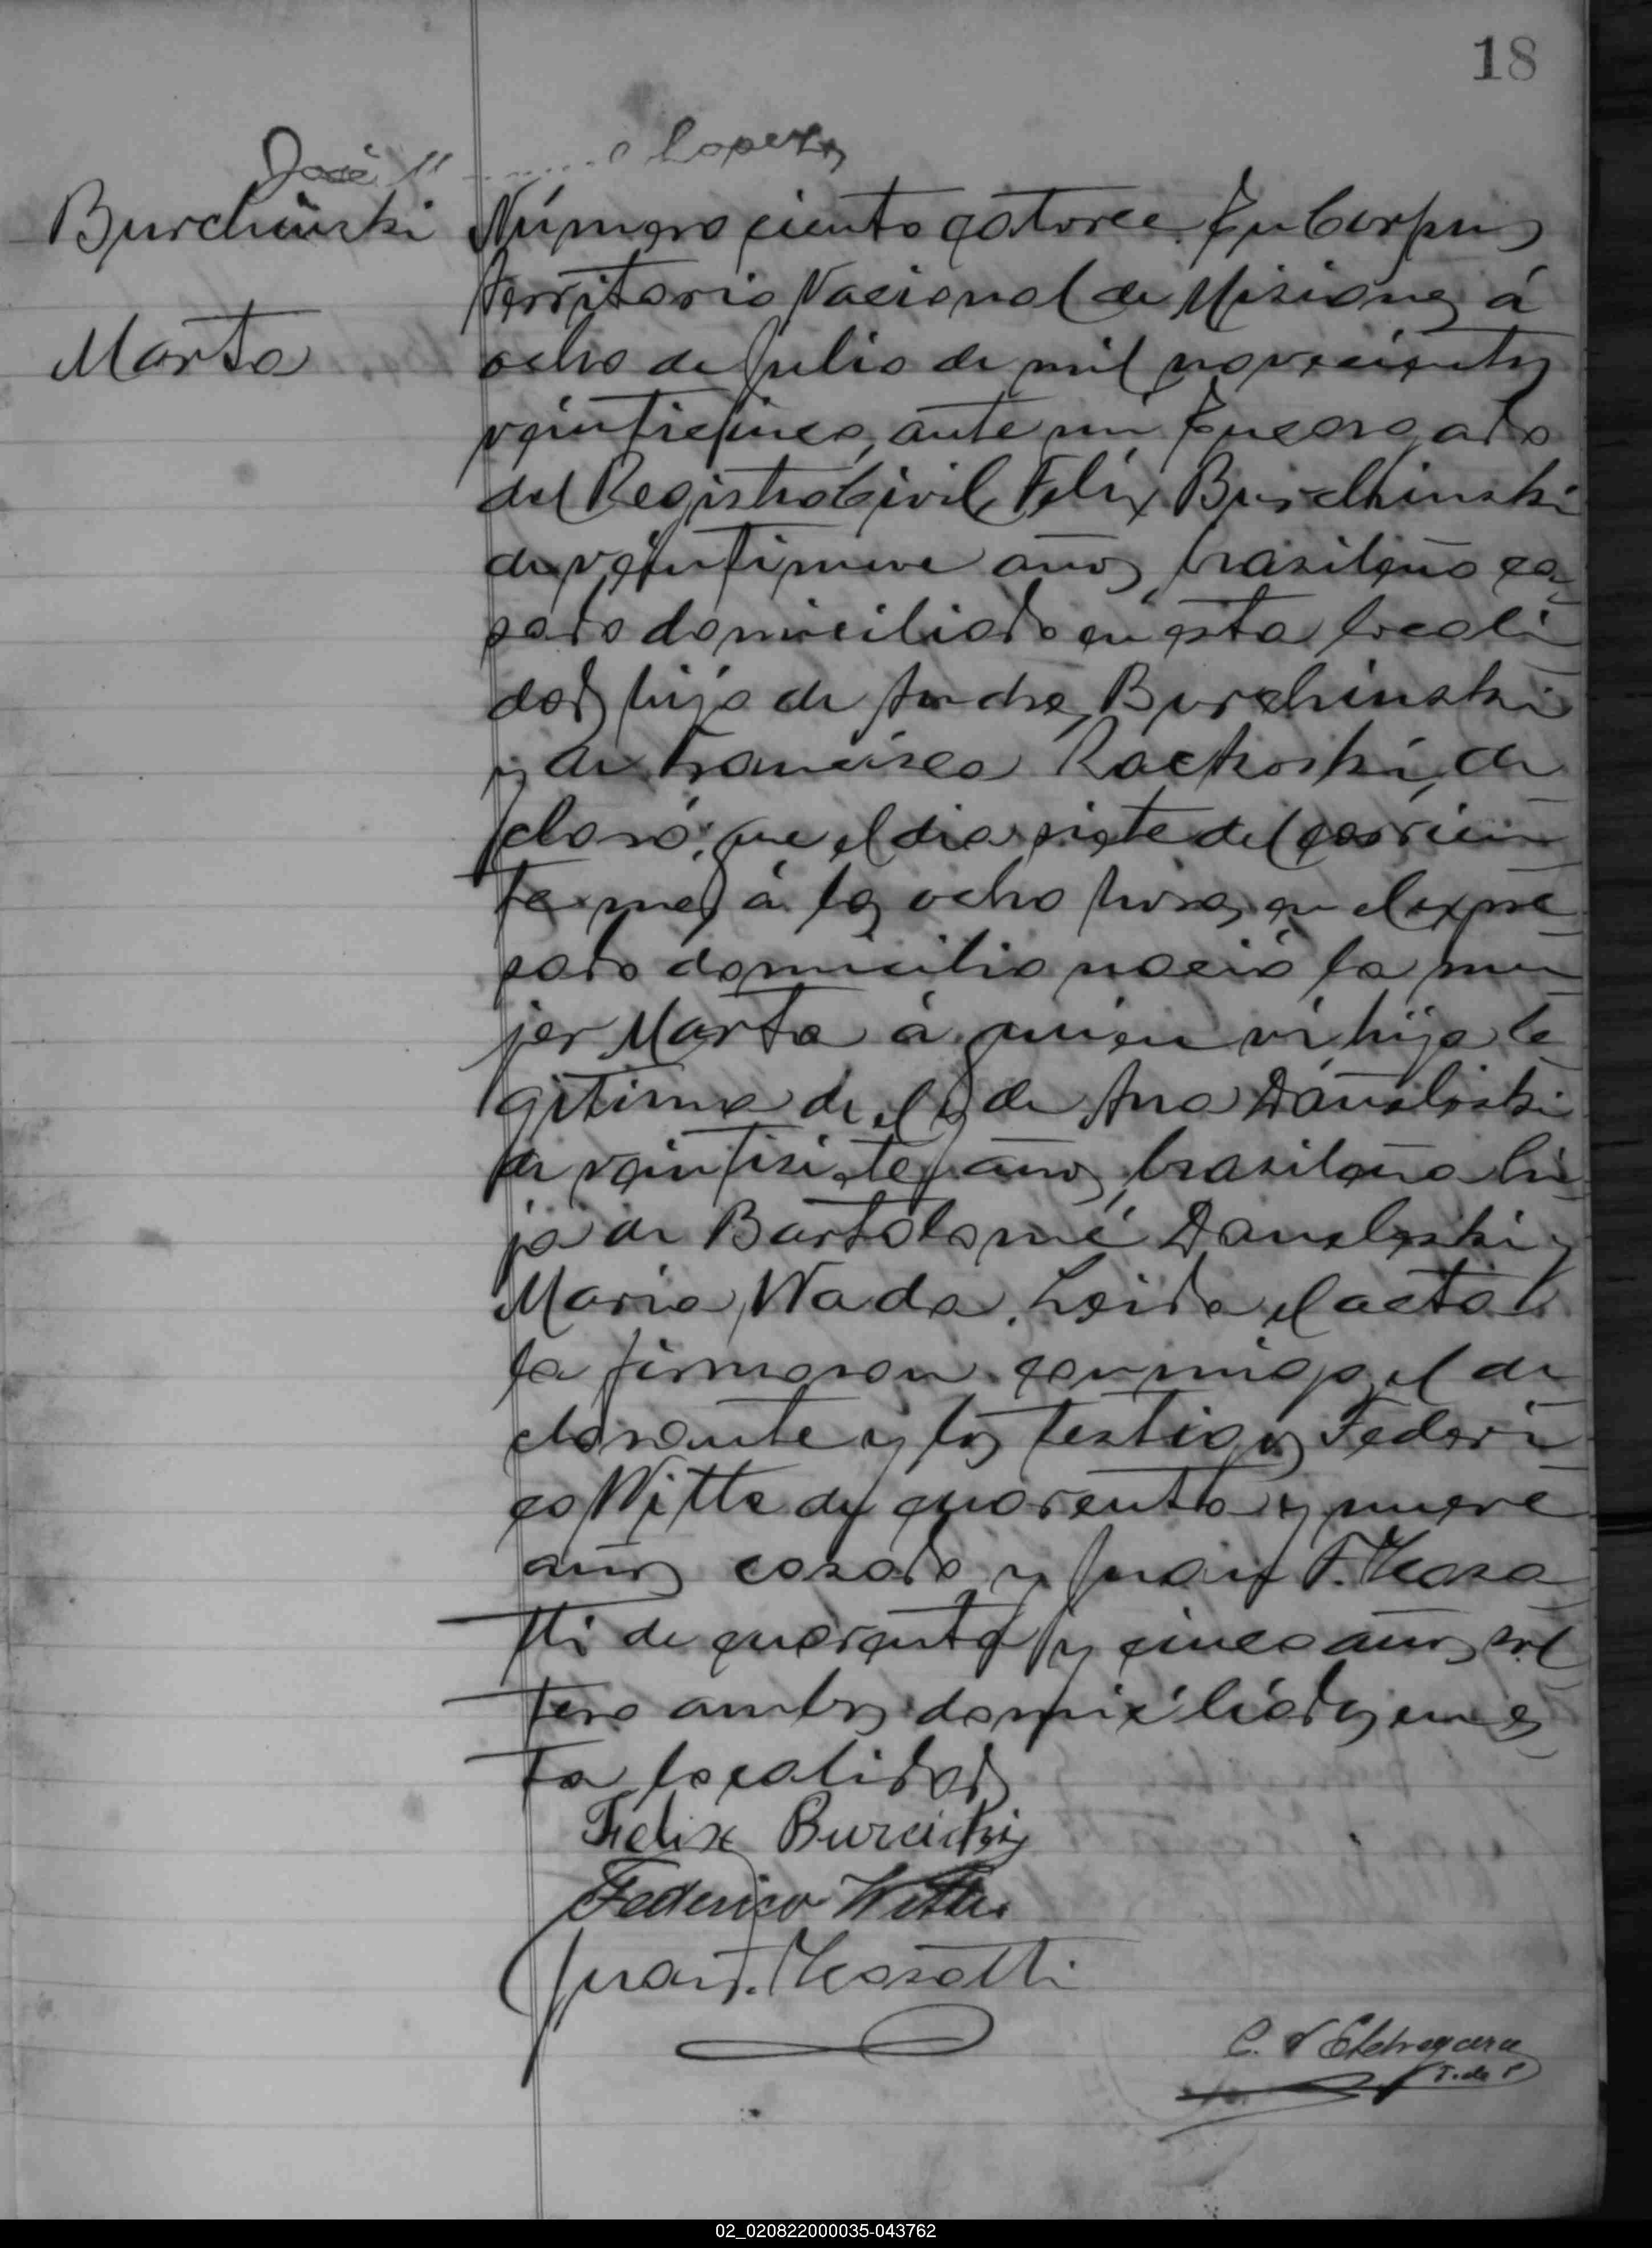 18
José Lopez
Burchinski
Marta
Número ciento catorce. En Corpus
Territorio Nacional de Misiones á
ocho de Julio de mil novecientos
veinticinco, ante mi Encargado
del Registro Civil, Felix Burchinski
de veintinueve años, brasileño ca
sado domiciliado en esta locali
dad hijo de Andre Burchinski
y de Francisca Rackoski, de
claró; que el dia siete del corrien
te mes á las ocho horas, en el expre
sado domicilio nació la mu
jer Marta á quien vi hija le
gitima de el y de Ana Danaleski
de veintisiete años, brasileña hi
ja de Bartolomé Danaleski y
Maria Wada. Leida el acta
la firmaron conmigo, el de
clarante y los testigos Federi
co Witte de cuarenta y nueve
años casado y Juan F. Masa
tti de cuarenta y cinco años sol
tero ambos domiciliados en es
ta localidad
Felix Burcicki
Federico Witte
Juan F. Masatti
C. V Etchegaray
J. de P
02_020822000035-043762